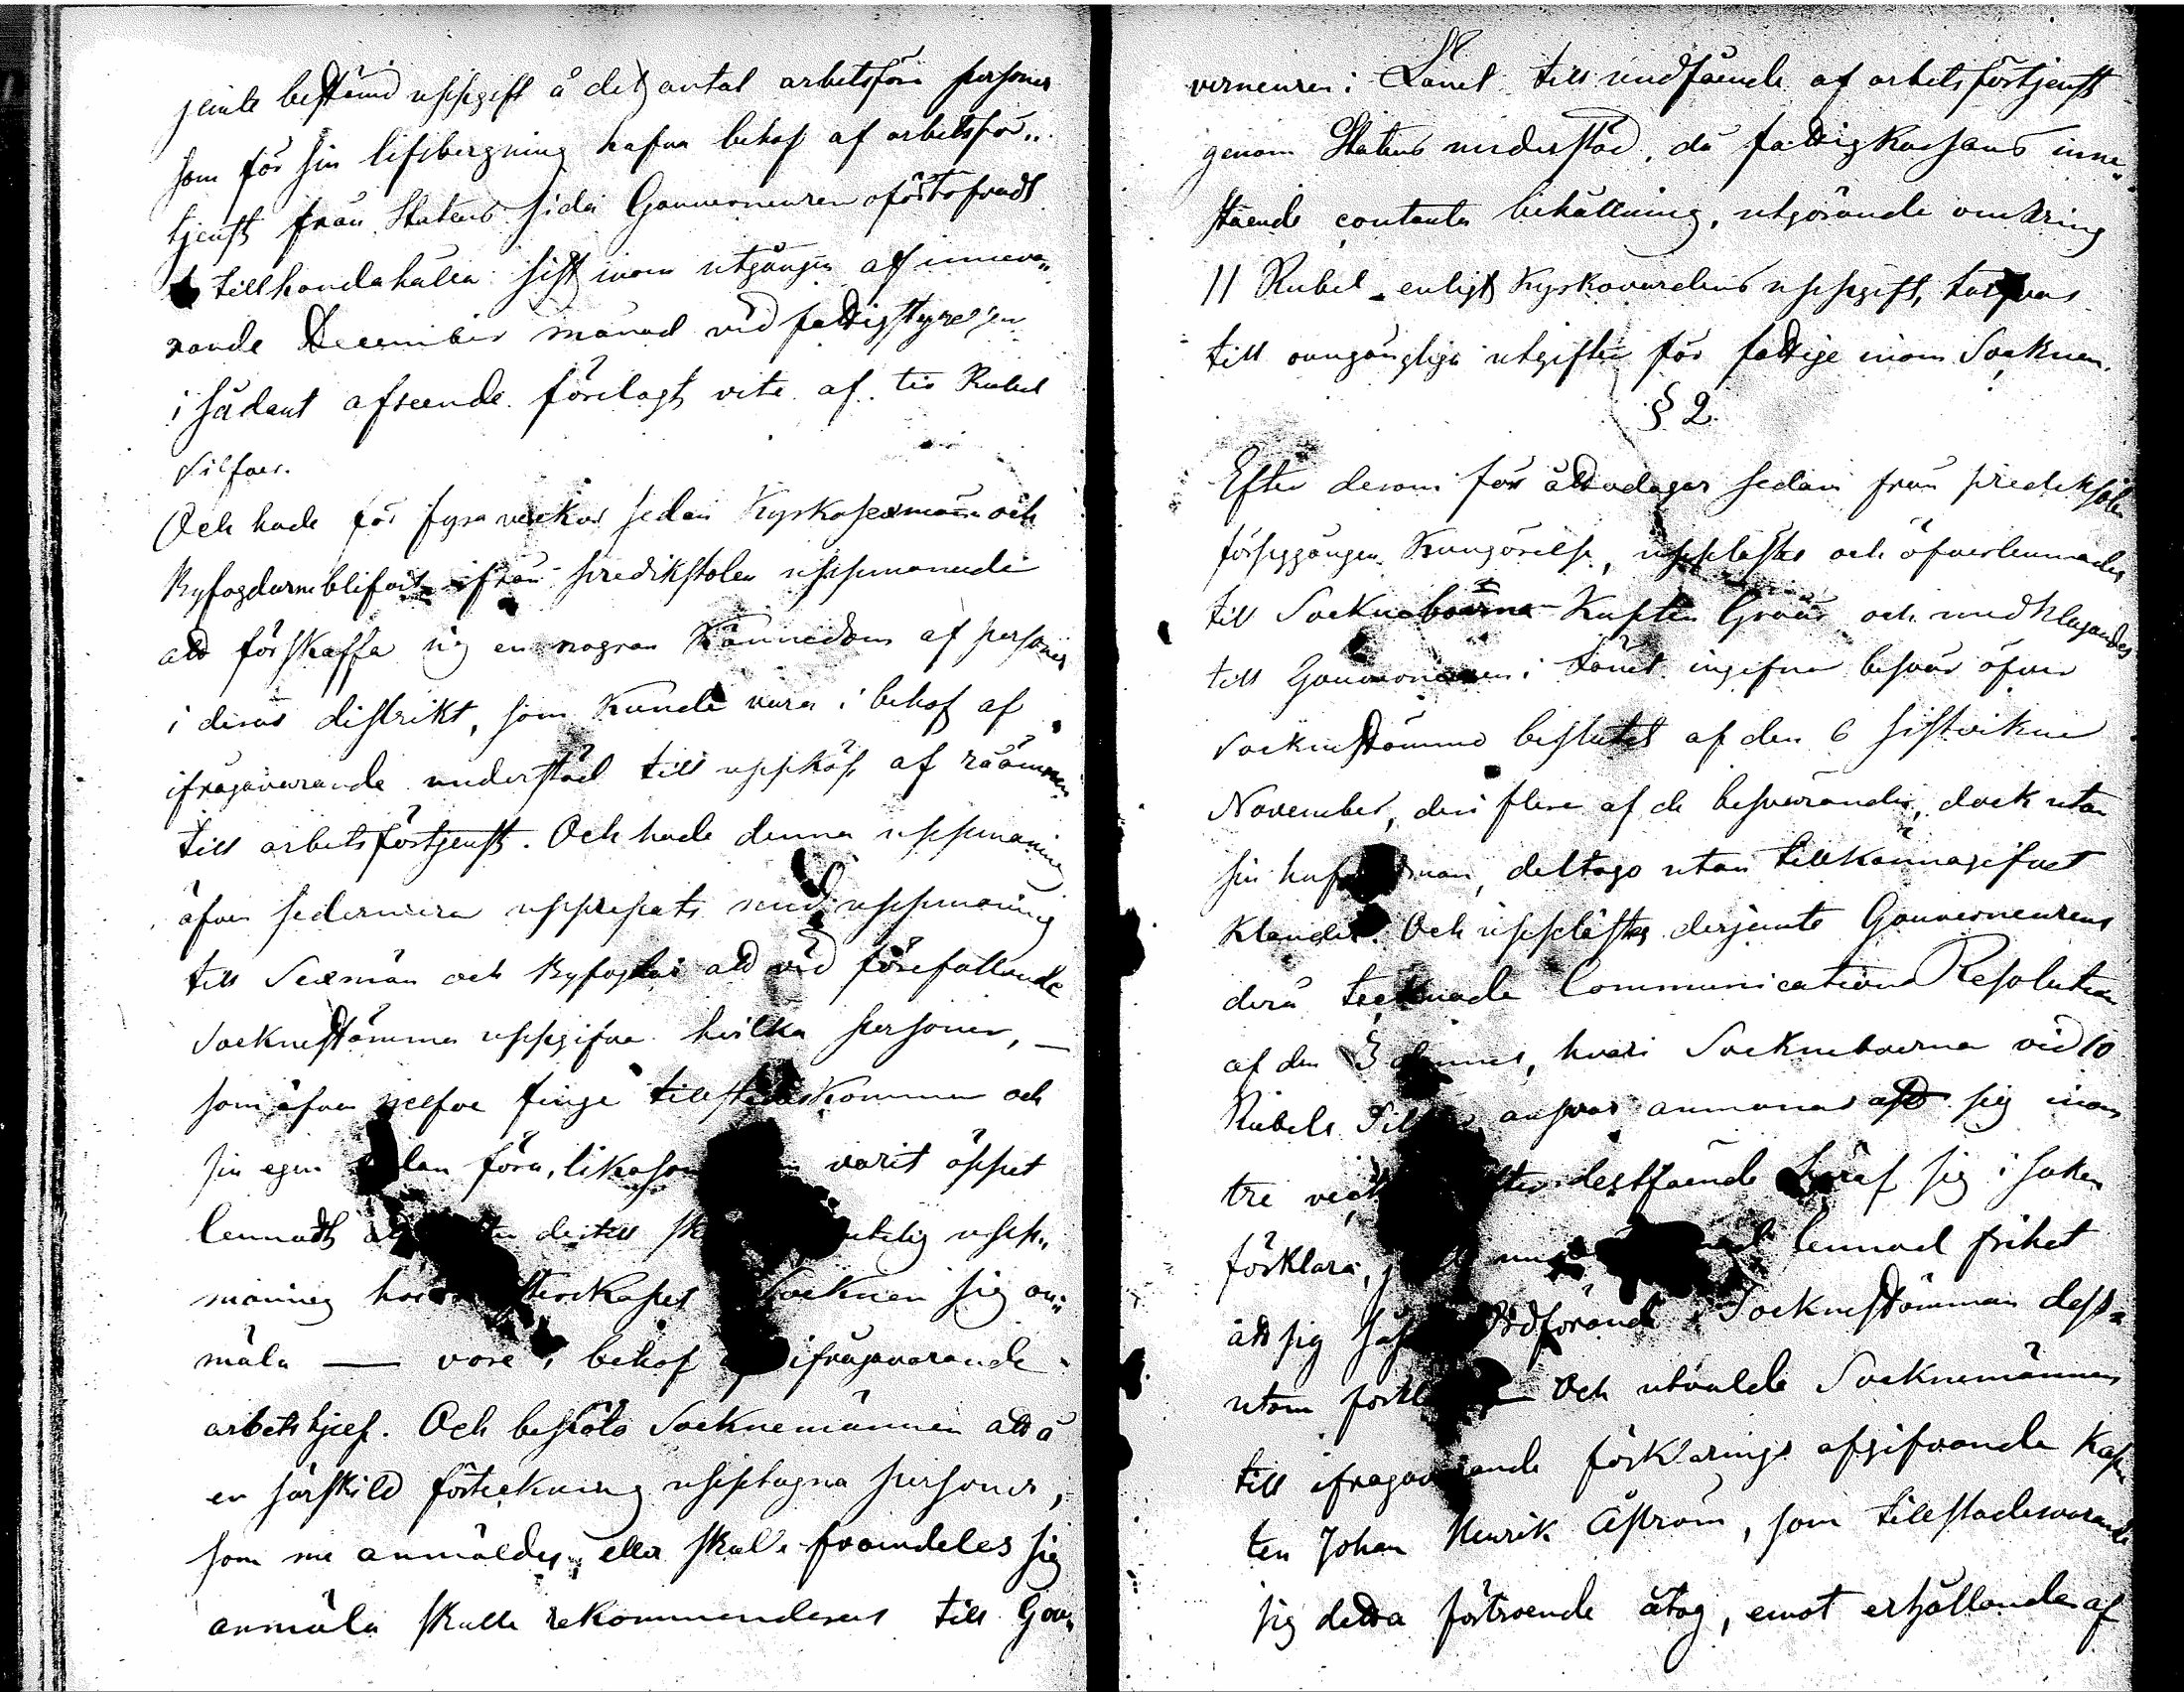 jemte bestämd uppgift å det antal arbetsföra personer
som för sin lifsbergning hafva behof af arbetsför„
tjenst från Statens sida Gouverneuren oförtöfvadt
tillhandahålla sist inom utgången af inneva„
rande December månad vid fattigstyrelsen
i sådant afseende förelagt vite af tio Rubel
Silfver.
Och hade för fyra veckor sedan Kyrkosexmän och
Byfogdarne blifvit ifrån predikstolen uppmanade
att förskaffa sig en nogran Kännedom af personer
i deras distrikt, som kunde vara i behof af
ifrågavarande understöd till uppköp af råämnen
till arbetsförtjenst. Och hade denna uppmaning
äfven sedermera upprepats med uppmaning
till Sexmän och Byfogdar att vid förefallande
Sockenstämma uppgifva hvilka personer, —
som äfven sjelfve finge tillstädeskomma och
sin egen talan föra, likasom varit öppet
lemnadt dertill upp„
maning hos Socknen sig an„
mäla — vore i behof af ifrågavarande
arbetshjelp. Och beslöto Socknemännen att å
en särskild förteckning upptagna personer,
som nu anmäldes, eller skulle framdeles sig
anmäla skulle rekommenderas till Gou„
verneuren i Länet till undfående af arbetsförtjenst
genom Statens understöd, då fattigkassans inne„
stående contanta behållning, utgörande omkring
11 Rubel enligt Kyrkovärdens uppgift,
till oumgängliga utgifter för fattige inom Socknen.
§ 2
Efter derom för åtta dagar sedan från predikstolen
försiggången Kungörelse, upplästes och öfverlemnades
till Socknoboerna Kapten och medklagandes
till Gouverneuren i Länet ingifna besvär öfver
Sockenstämmo beslutet af den 6 sistvikne
November, deri flere af de besvärande, dock utan
sin hufvudman, deltago utan tillkännagifvet
Klander. Och upplästes derjemte Gouverneurens
derå tecknade Communications Resolution
af den 3 dennes, hvari Socknoboerna vid 10
Rubels Silfver ansvar anmanas att sig inom
tre veckor efter destfående häraf sig i saken
förklara, lemnad frihet
att sig Ordförande i Sockenstämman dess„
utom Och utvalde Socknemännen
till ifrågavarande förklarings afgifvande Kap„
ten Johan Henrik Åström, som tillstädesvarande
sig detta förtroende åtog, emot erhållande af